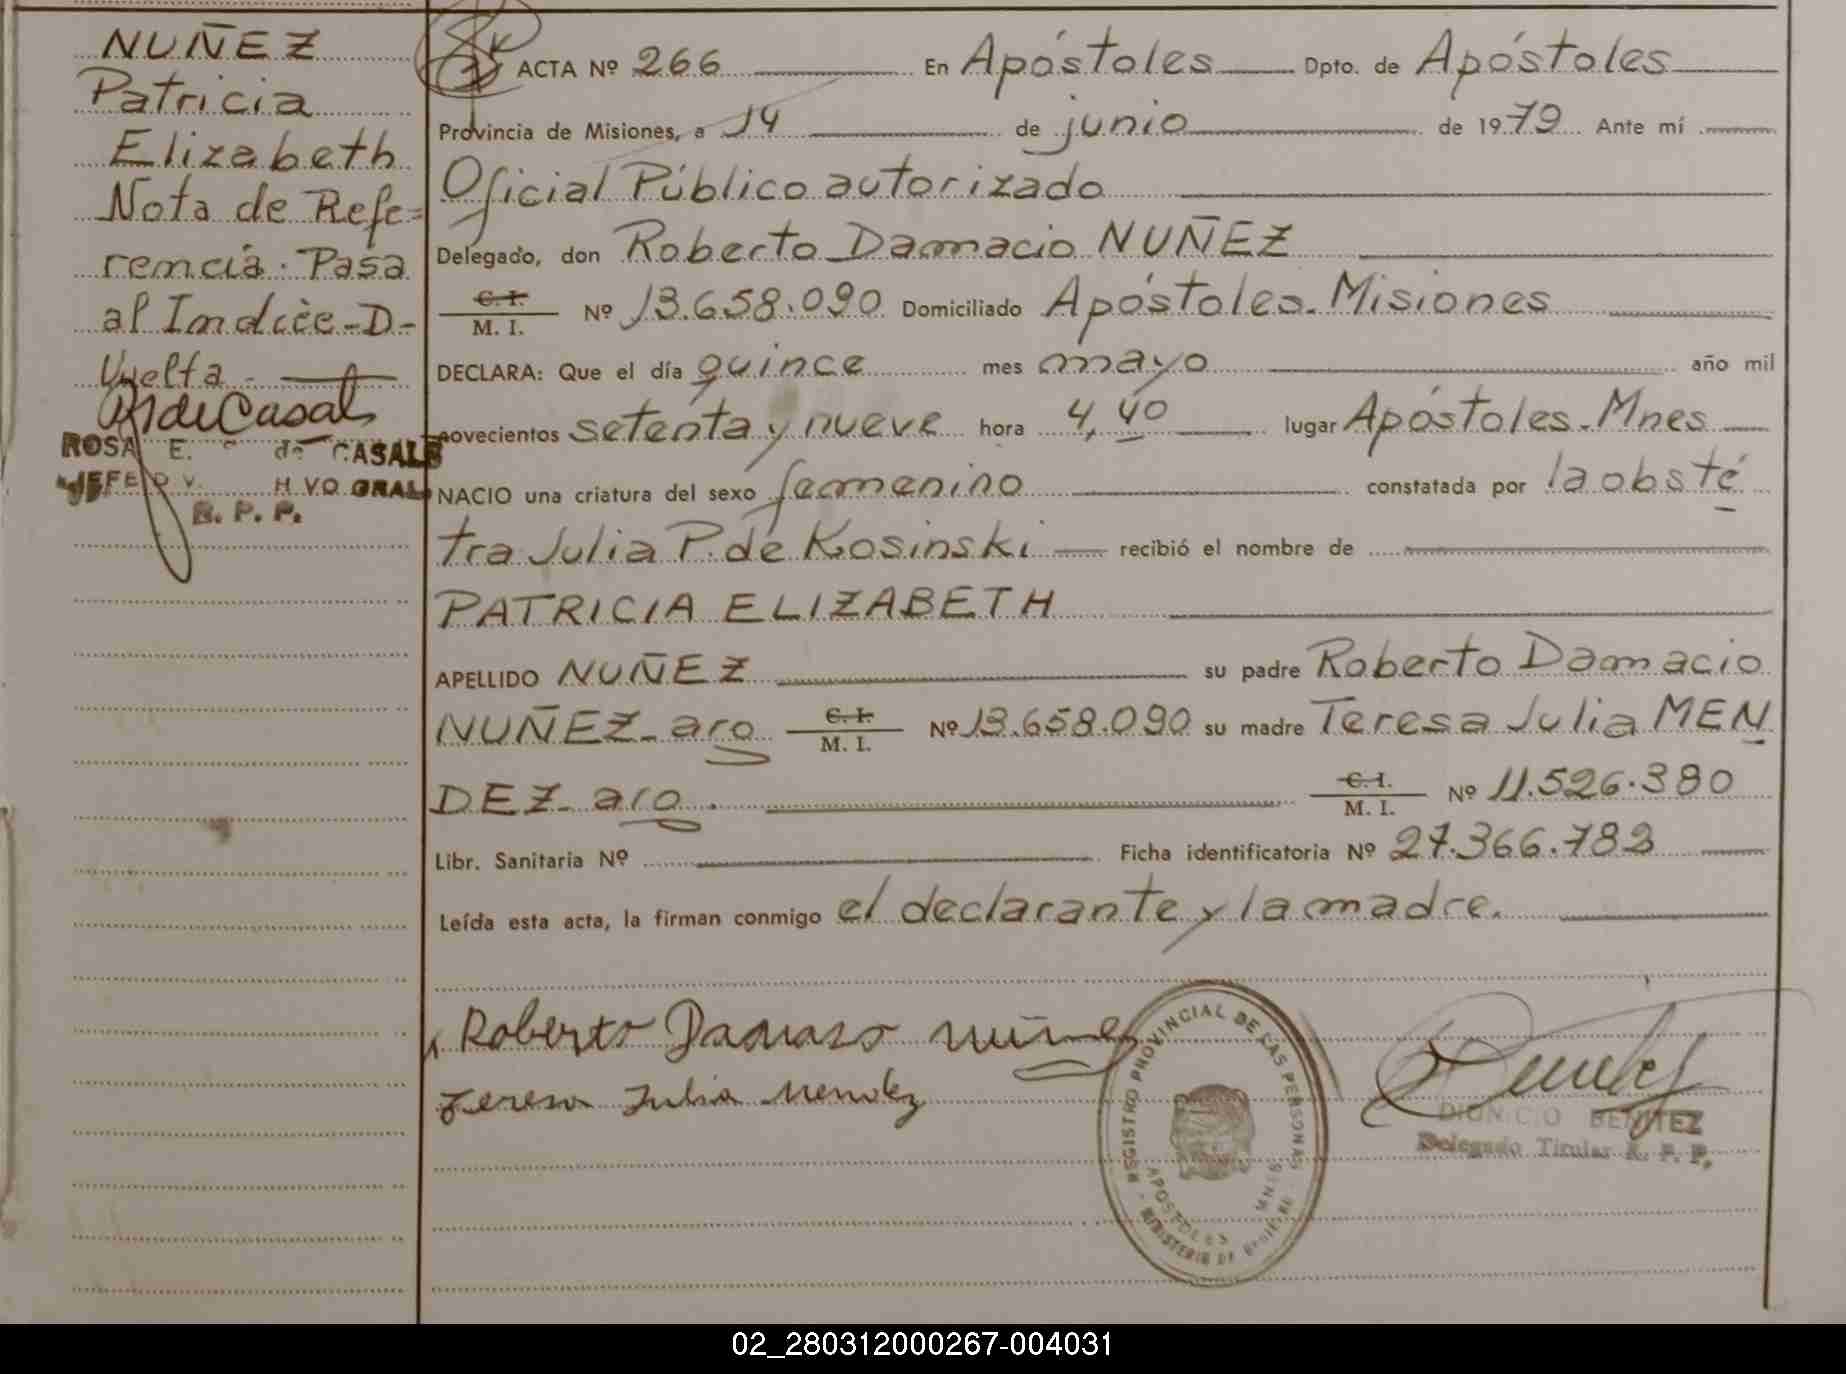 NUÑEZ
Patricia
Elizabeth
Nota de Refe=
rencia. Pasa
al Indice-D-
Vuelta
ROSA E. de CASALE
JEFE
R. P. P.
ACTA Nº 266 En Apóstoles Dpto. de Apóstoles
Provincia de Misiones, a 14 de junio de 1979 Ante mí
Oficial Público autorizado
Delegado, don Roberto Damacio NUÑEZ
C. I.
M. I. Nº 13.658.090 Domiciliado Apóstoles. Misiones
DECLARA: Que el día quince mes mayo año mil
novecientos setenta y nueve hora 4,40 lugar Apóstoles. Mnes
NACIO una criatura del sexo femenino constatada por la obsté
tra Julia P. de Kosinski recibió el nombre de
PATRICIA ELIZABETH
APELLIDO NUÑEZ su padre Roberto Damacio
NUÑEZ- aro C. I. M. I. Nº 13.658.090 su madre Teresa Julia MEN
DEZ- aro. C. I. M. I. Nº 11.526.380
Libr. Sanitaria Nº Ficha identificatoria Nº 27.366.783
Leída esta acta, la firman conmigo el declarante y la madre.
Roberto Damaso Nuñez
Teresa Julia Mendez
REGISTRO PROVINCIAL DE LAS PERSONAS
APOSTOLES MNES
MINISTERIO DE
DIONICIO BENITEZ
Delegado Titular R. P. P.
02_280312000267-004031